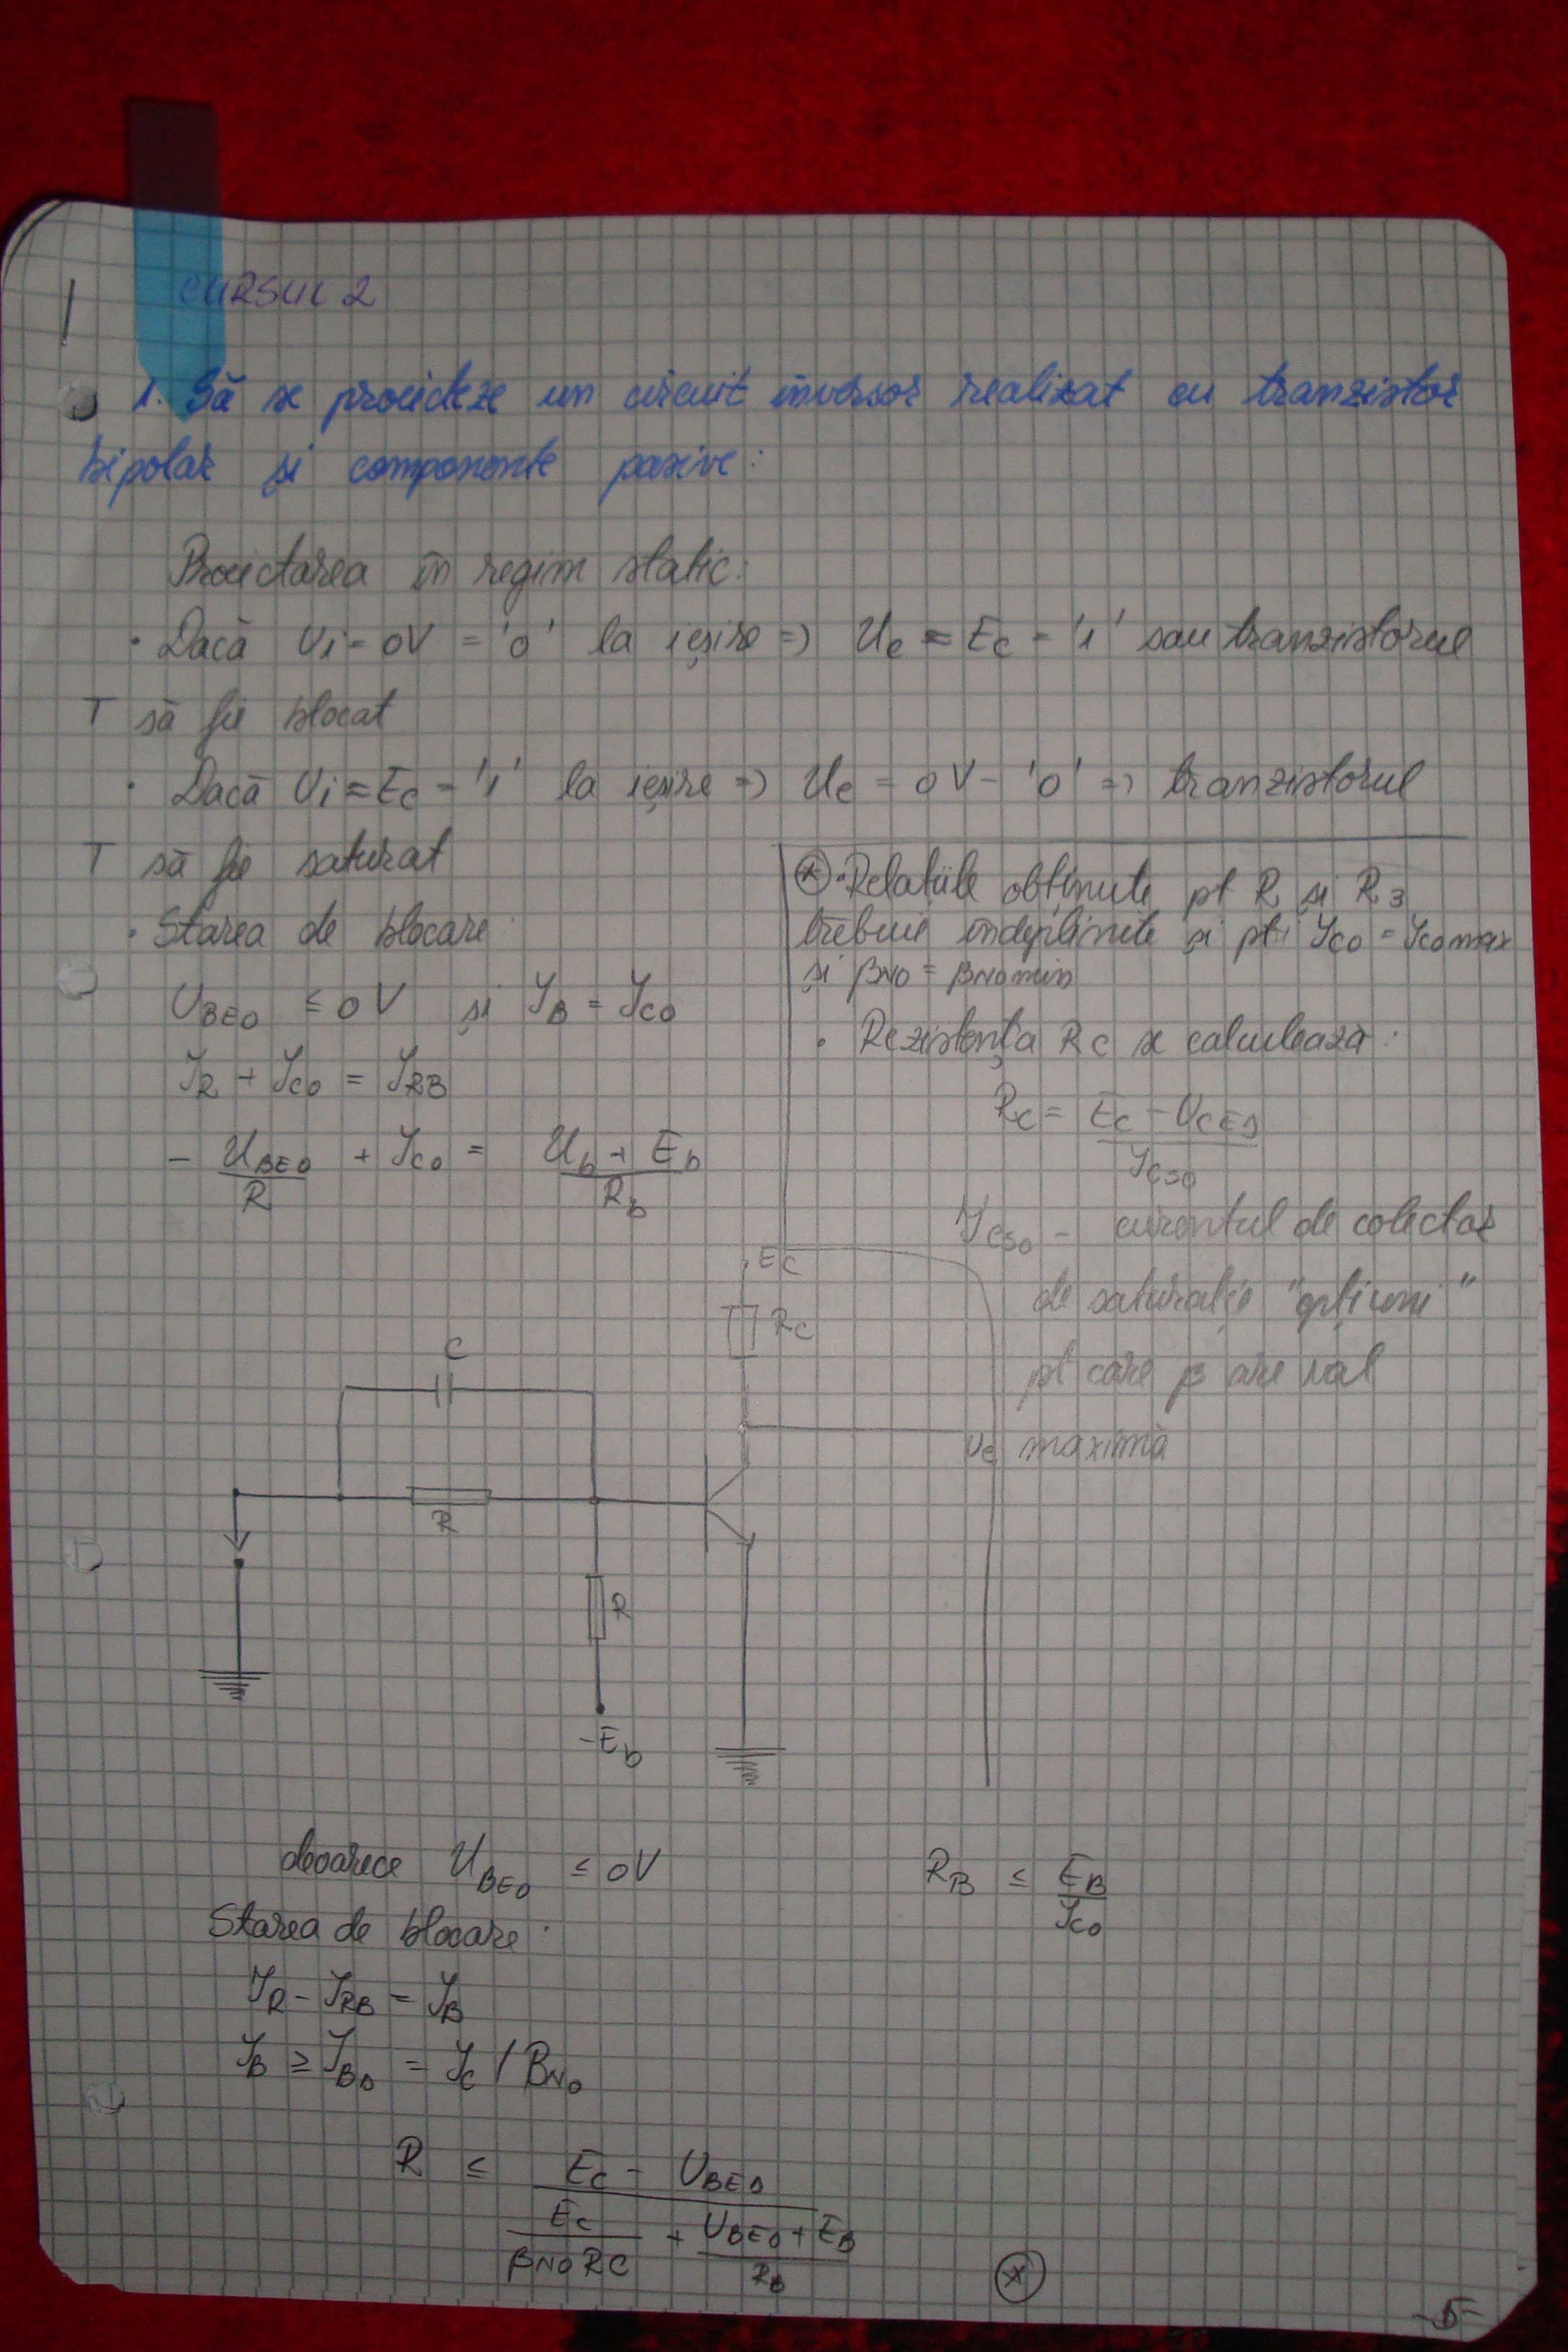 CURSUL 2
1. Să se proiecteze un circuit inversor realizat cu tranzistor
bipolar și componente pasive:
Proiectarea în regim static:
• Dacă Ui = 0V = '0' la ieșire => Ue = Ec = '1' sau tranzistorul
T să fie blocat
• Dacă Ui = Ec = '1' la ieșire => Ue = 0V = '0' => tranzistorul
T să fie saturat
• Starea de blocare:
UBE0 ≤ 0V și IB = IC0
IR + IC0 = IRB
- UBE0/R + IC0 = (Ub + Eb)/Rb
⊛ • Relațiile obținute pt R și R3
trebuie îndeplinite și pt IC0 = IC0max
și βN0 = βN0min
• Rezistența Rc se calculează:
Rc = (Ec - UCES)/ICS0
ICS0 - curentul de colector
de saturație "opțiuni"
pt care β are val
maximă
Ec
Rc
C
ue
R
R
-Eb
deoarece UBE0 ≤ 0V
RB ≤ EB/IC0
Starea de blocare:
IR - IRB = IB
IB ≥ IBS = IC / BN0
R ≤ (Ec - UBES)/(Ec/(βN0 RC) + (UBES + EB)/RB)
⊛
-5-